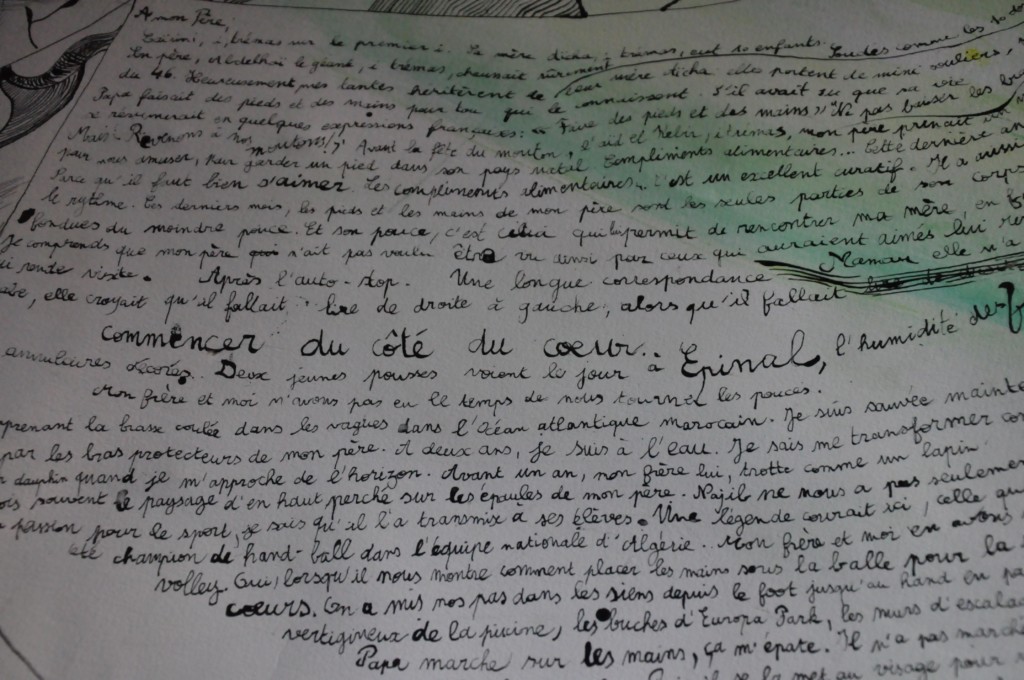 A mon Père,
sur le premier i. Sa mère Aicha, i trémas, eut 10 enfants. Toutes comme les 10 do
Son père, Abdelhai le géant, i trémas, chaussait sûrement du 46. mère Aicha elles portent de mini souliers,
du 46. Heureusement mes tantes héritèrent de leur
Papa faisait des pieds et des mains pour tou qui le connaissent. S'il avait su que sa vie
se résumerait en quelques expressions françaises : "Faire des pieds et des mains" "Ne pas baisser les bra
Mais Revenons à nos moutons ! Avant la fête du mouton, l'aid el Kebir, i trémas, mon père prenait un
pour nous amuser, pour garder un pied dans son pays natal. Compliments alimentaires... Cette dernière an
Parce qu'il faut bien s'aimer. Les compliments alimentaires, c'est un excellent curatif. Il a aussi
le rytème. Ces derniers mois, les pieds et les mains de mon père sont les seules parties de son corps
fondues du moindre pouce. Et son pouce, c'est celui qui lui permit de rencontrer ma mère, en
Je comprends que mon père n'ait pas voulu être vu ainsi par ceux qui auraient aimés lui re
rendre visite. Après l'auto-stop. Une longue correspondance Maman elle n'a
elle croyait qu'il fallait lire de droite à gauche, alors qu'il fallait
commencer du côté du coeur.. Epinal, l'humidité des
annulaires décorés.. Deux jeunes pousses voient le jour à
Mon frère et moi n'avons pas eu le temps de nous tourner les pouces.
prenant la brasse coulée dans les vagues dans l'Océan atlantique marocain. Je suis sauvée mainte
par les bras protecteurs de mon père. A deux ans, je suis à l'eau. Je sais me transformer
dauphin quand je m'approche de l'horizon. Avant un an, mon frère lui, trotte comme un lapin
souvent le paysage d'en haut perché sur les épaules de mon père. Najib ne nous a pas seulemen
passion pour le sport, je sais qu'il l'a transmix à ses élèves. Une légende courait ici, celle qu
été champion de hand-ball dans l'équipe nationale d'Algérie.. Mon frère et moi en avons
volley. Oui, lorsqu'il nous montre comment placer les mains sous la balle pour la
coeurs. On a mis nos pas dans les siens depuis le foot jusqu'au hand en pa
vertigineux de la piscine, les buches d'Europa Park, les murs d'escala
Papa marche sur les mains, ça m'épate. Il n'a pas march
la met au visage pour